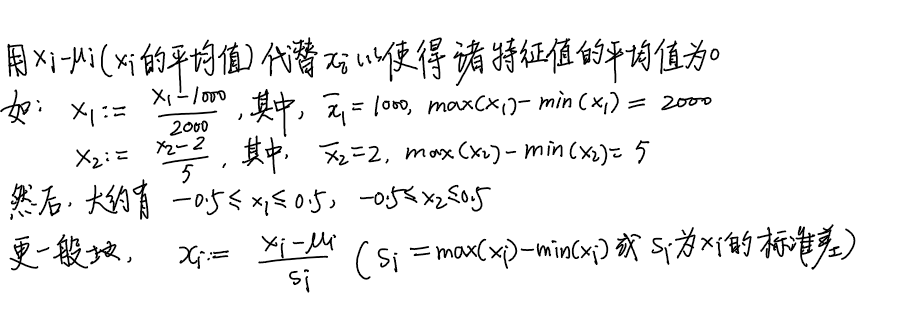 用xi-μi(xi的平均值)代替xi以使得诸特征值的平均值为0
如: x1:= (x1-1000)/2000, 其中, x̄1=1000, max(x1)-min(x1)=2000
x2:= (x2-2)/5, 其中, x̄2=2, max(x2)-min(x2)=5
然后, 大约有 -0.5≤x1≤0.5, -0.5≤x2≤0.5
更一般地, xi:= (xi-μi)/si (si=max(xi)-min(xi)或si为xi的标准差)